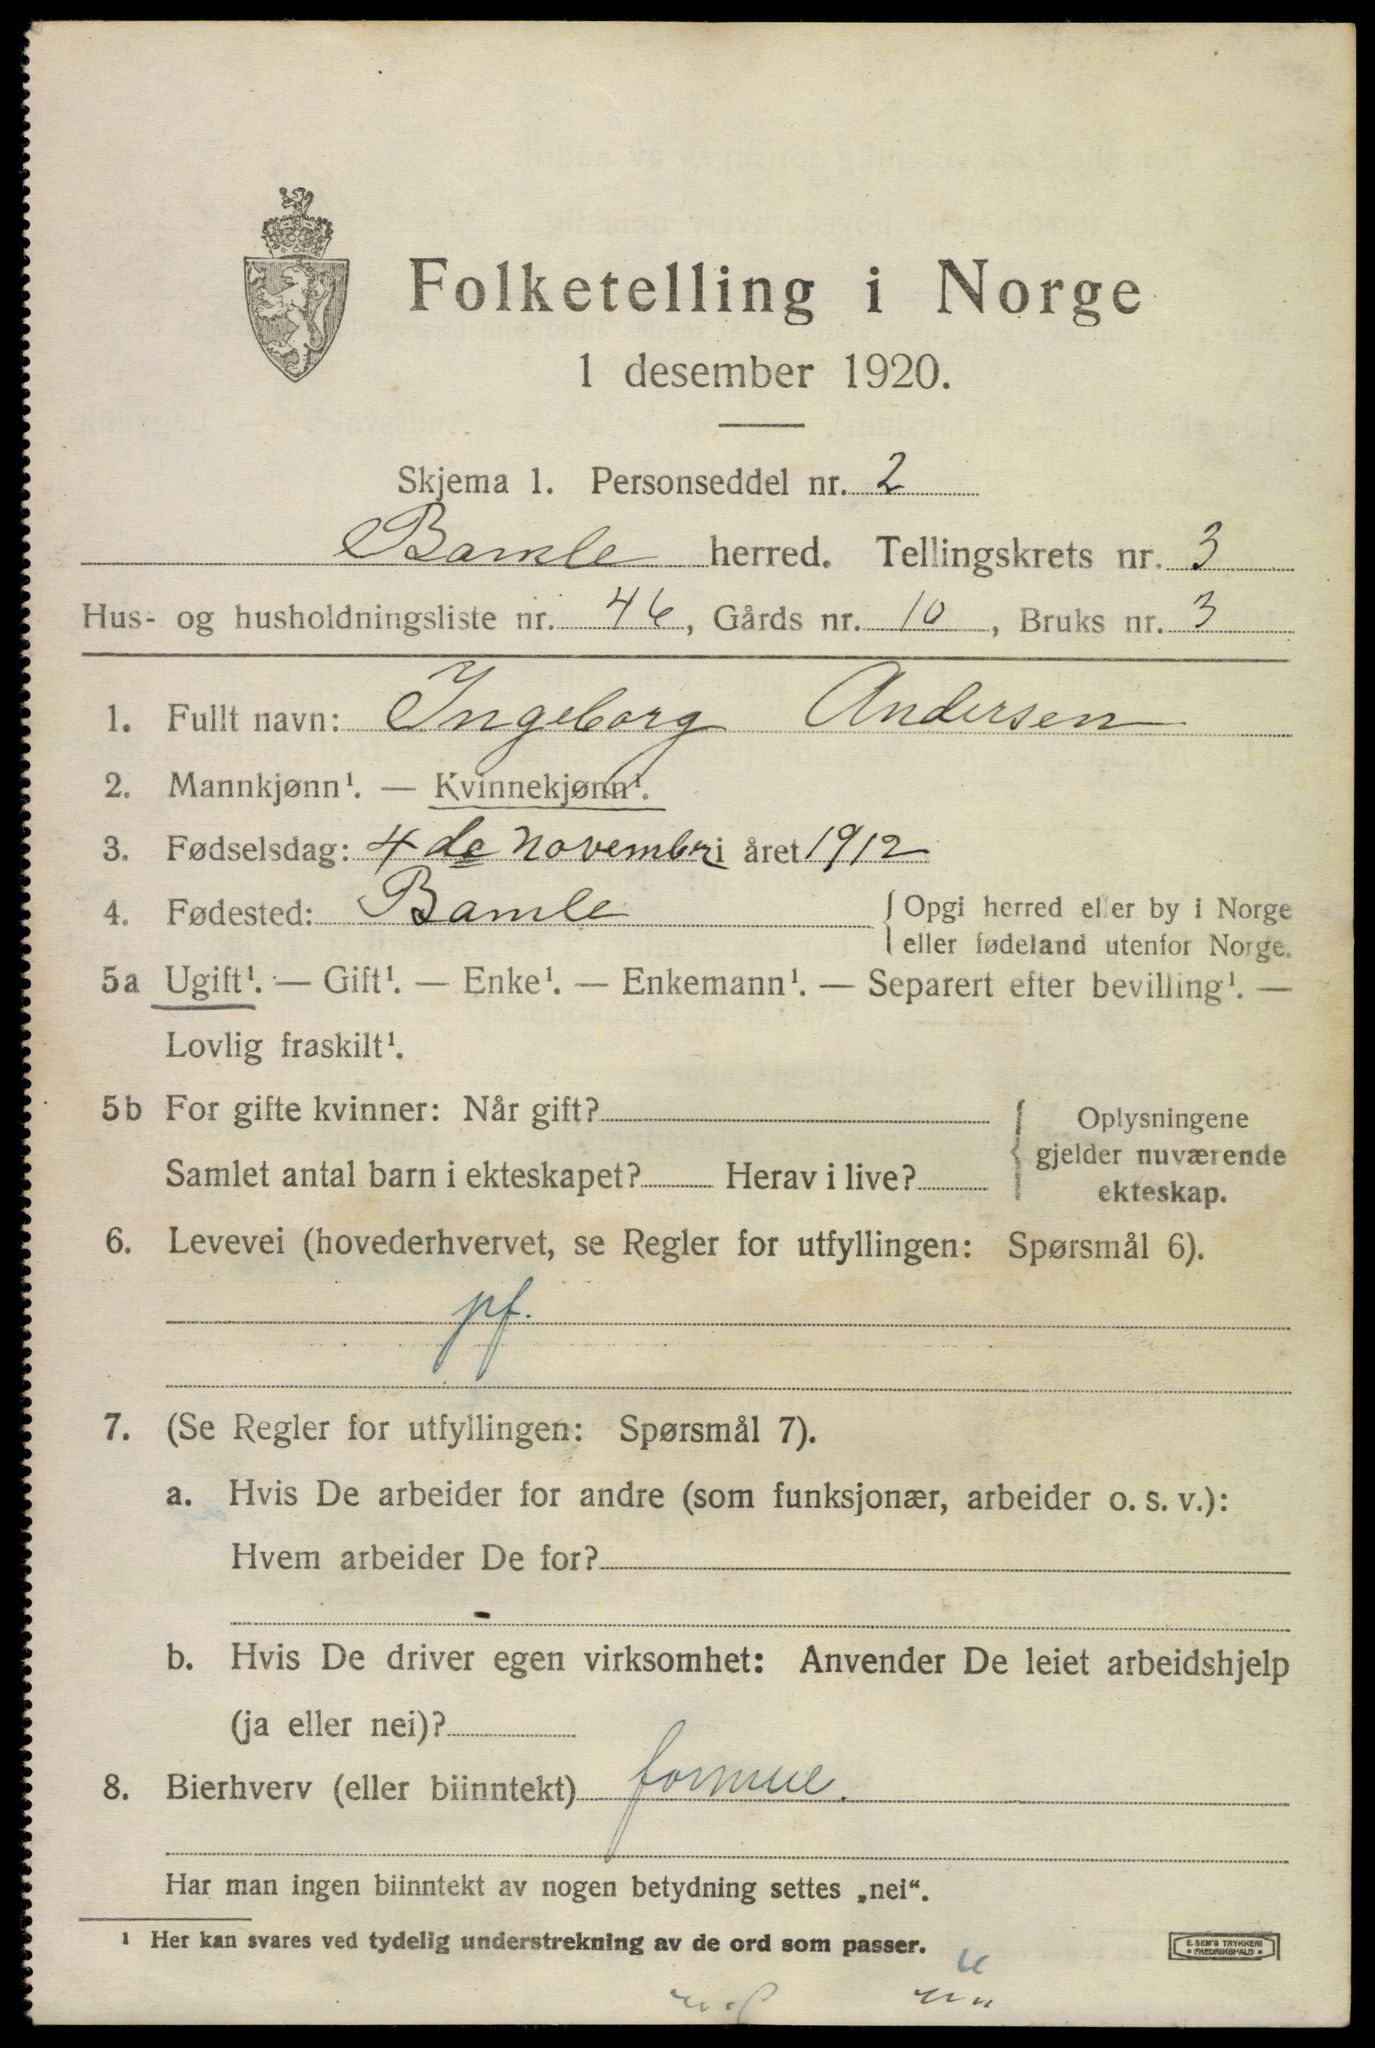 Folketelling i Norge
1 desember 1920.
Skjema 1. Personseddel nr. 2
Bamle herred. Tellingskrets nr. 3
Hus- og husholdningsliste nr. 46, Gårds nr. 10, Bruks nr. 3
1. Fullt navn: Ingeborg Andersen
2. Mannkjønn¹. — Kvinnekjønn¹.
3. Fødselsdag: 4de novembr i året 1912
4. Fødested: Bamle { Opgi herred eller by i Norge
eller fødeland utenfor Norge.
5a Ugift¹. — Gift¹. — Enke¹. — Enkemann¹. — Separert efter bevilling¹. —
Lovlig fraskilt¹.
5b For gifte kvinner: Når gift?
Samlet antal barn i ekteskapet? Herav i live?
{ Oplysningene
gjelder nuværende
ekteskap.
6. Levevei (hovederhvervet, se Regler for utfyllingen: Spørsmål 6).
pf.
7. (Se Regler for utfyllingen: Spørsmål 7).
a. Hvis De arbeider for andre (som funksjonær, arbeider o. s. v.):
Hvem arbeider De for?
b. Hvis De driver egen virksomhet: Anvender De leiet arbeidshjelp
(ja eller nei)?
8. Bierhverv (eller biinntekt) formue.
Har man ingen biinntekt av nogen betydning settes „nei“.
¹ Her kan svares ved tydelig understrekning av de ord som passer.
E. SEM'S TRYKKERI
• FREDRIKSHALD •